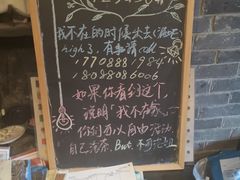 我不在的时候火去(酒吧)
high了,有事请call
17708881984
18088086006
如果你看到这个,
说明「我不在家」,
你们可以自由活动,
自己泡茶。But,不可泡妞